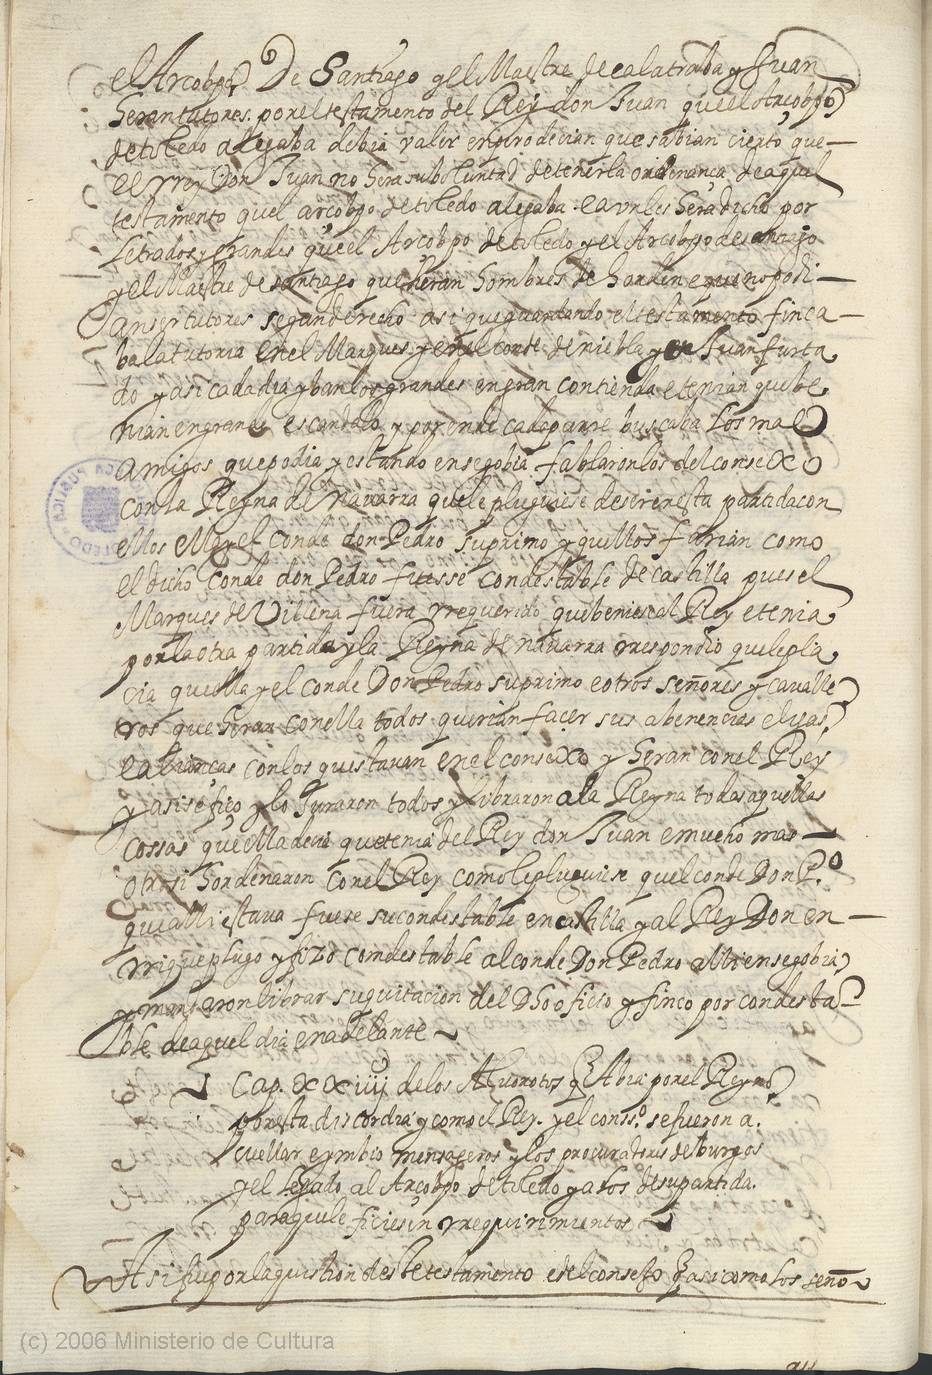 el Arcobpo De Santiago y el Maestre de calatraba y Juan
heran tutores. por el testamento del Rey don Juan que el Arcobpo
de toledo alegaba debia valer enpero decian que sabian cierto que
el rrey Don Juan no hera su boluntad de tener la ordenança de aquel
testamento quel arcobpo de toledo alegaba. e avn les hera dicho por
letrados y grandes que el Arcobpo de toledo y el Arcobpo de santiago
y el Maestre de santiago que heran hombres de horden e que no podi
an ser tutores segun derecho asi que guardando el testamento finca
ba la tutoria en el Marques y en el conde de niebla y en Juan furta
do y asi cada dia yban los grandes en gran contienda e tenian que be
nian en grande escandalo y por ende cada parte buscaba los mas
amigos que podia y estando en segobia fablaron los del consexo
con la Reyna de Navarra que le pluguiese de ser en esta partida con
ellos el conde don Pedro su primo y que ellos farian como
el dicho conde don Pedro fuesse condestable de castilla pues el
Marques de Villena fuera rrequerido que beniese al Rey e tenia
por la otra partida y la Reyna de navarra rrespondio que le pla
cia que ella y el conde Don Pedro su primo e otros señores y cavalle
ros que heran con ella todos querian façer sus abenencias e ligas
e abiancas con los que estavan en el consexo y heran con el Rey
y asi se fiço y lo Juraron todos y libraron a la Reyna todas aquellas
cossas que ella decia que tenia del Rey don Juan e mucho mas
otrosi hordenaron con el Rey como le pluguiese quel conde Don P.º
que alli estava fuese su condestable en castilla y al Rey Don en
rrique plugo y fizo condestable al conde Don Pedro alli en segobia
y mandaron librar su quitacion del Dho oficio y finco por condesta
ble de aquel dia en adelante
Cap. xxiiij de los Alvorotos q Abia por el Reyno
por esta discordia y como el Rey. y el cons.º se fueron a.
cuellar e ynbio mensageros y los procuradores de burgos
y el legado al Arçobpo de toledo y a los de su partida.
para que le ficiesen rrequirimientos
Asi fue por la question deste testamento e del consejo q asi como los seño
(c) 2006 Ministerio de Cultura